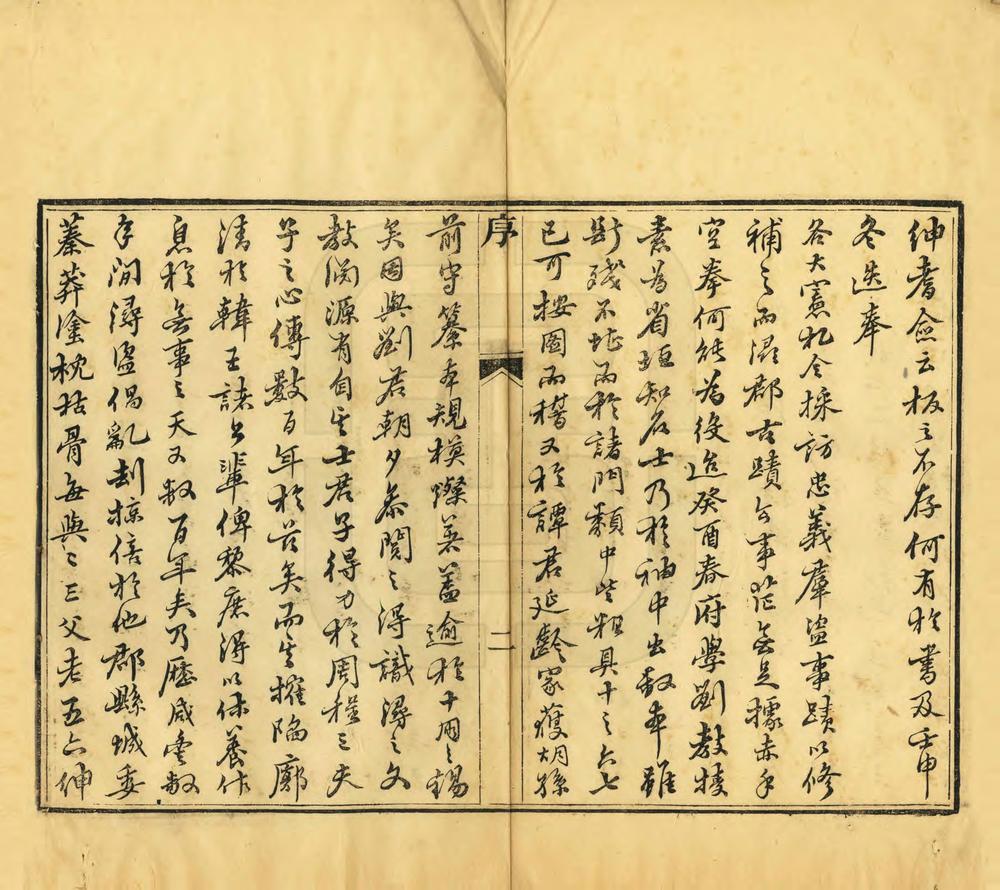 紳耆僉云板之不存何有於書及壬申
冬迭奉
各大憲札令採訪忠義羣盜事蹟以修
補之而潯郡古蹟今事茫無足據赤手
空拳何能為役迨癸酉春府學劉教授
素為省垣知名士乃於袖中出數本雖
斷殘不堪而於諸門類中些粗具十之六七
已可按圖而稽又於譚君延齡家獲胡孫
序
二
前守纂本規模燦著蓋逾於十朋之錫
矣因與劉君朝夕參閱之得識潯之文
教淵源有自其士君子得力於周程三夫
子之心傳數百年於茲矣而其摧陷廓
清於韓王諸公輩俾黎庶得以休養作
息於無事之天又數百年矣乃歷咸豐數
年間潯盜倡亂刦掠倍於他郡縣城委
蓁莽塗枕枯骨每與之三父老五六紳